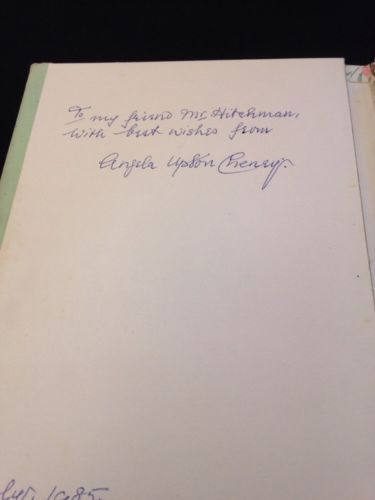 To my friend Mr Hitchman,
With best wishes from
Angela Upton Cheney.
1985.